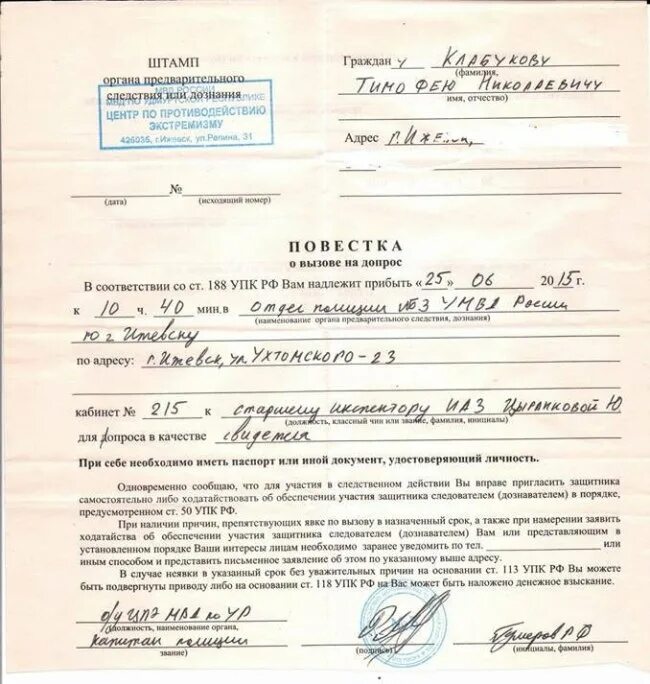 ШТАМП
органа предварительного
следствия или дознания
МВД РОССИИ
МВД ПО УДМУРТСКОЙ РЕСПУБЛИКЕ
ЦЕНТР ПО ПРОТИВОДЕЙСТВИЮ
ЭКСТРЕМИЗМУ
426035, г.Ижевск, ул.Репина, 31
(дата)
№
(исходящий номер)
Граждан у Клабукову
(фамилия,
Тимофею Николаевичу
имя, отчество)
Адрес г. Ижевск,
ПОВЕСТКА
о вызове на допрос
В соответствии со ст. 188 УПК РФ Вам надлежит прибыть «25» 06 2015г.
к 10 ч. 40 мин. в отдел полиции №3 УМВД России
(наименование органа предварительного следствия, дознания)
по г. Ижевску
по адресу: г. Ижевск, ул. Ухтомского-23
кабинет № 215 к старшему инспектору ИАЗ Ю
(должность, классный чин или звание, фамилия, инициалы)
для допроса в качестве свидетеля
При себе необходимо иметь паспорт или иной документ, удостоверяющий личность.
Одновременно сообщаю, что для участия в следственном действии Вы вправе пригласить защитника
самостоятельно либо ходатайствовать об обеспечении участия защитника следователем (дознавателем) в порядке,
предусмотренном ст. 50 УПК РФ.
При наличии причин, препятствующих явке по вызову в назначенный срок, а также при намерении заявить
ходатайства об обеспечении участия защитника следователем (дознавателем) Вам или представляющим в
установленном порядке Ваши интересы лицам необходимо заранее уведомить по тел. или
иным способом и представить письменное заявление об этом по указанному выше адресу.
В случае неявки в указанный срок без уважительных причин на основании ст. 113 УПК РФ Вы можете
быть подвергнуты приводу либо на основании ст. 118 УПК РФ на Вас может быть наложено денежное взыскание.
о/у ЦПЭ МВД по УР
(должность, наименование органа,
капитан полиции
звание)
(подпись)
(инициалы, фамилия)